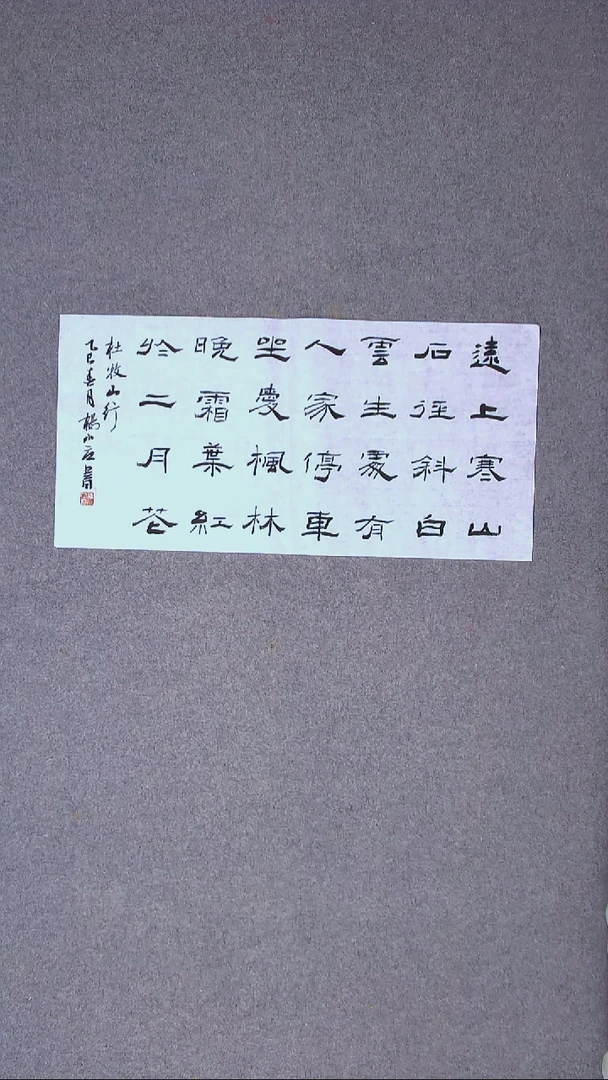 遠上寒山
石徑斜白
雲生處有
人家停車
坐愛楓林
晚霜葉紅
於二月花
杜牧山行
乙巳春月楊書